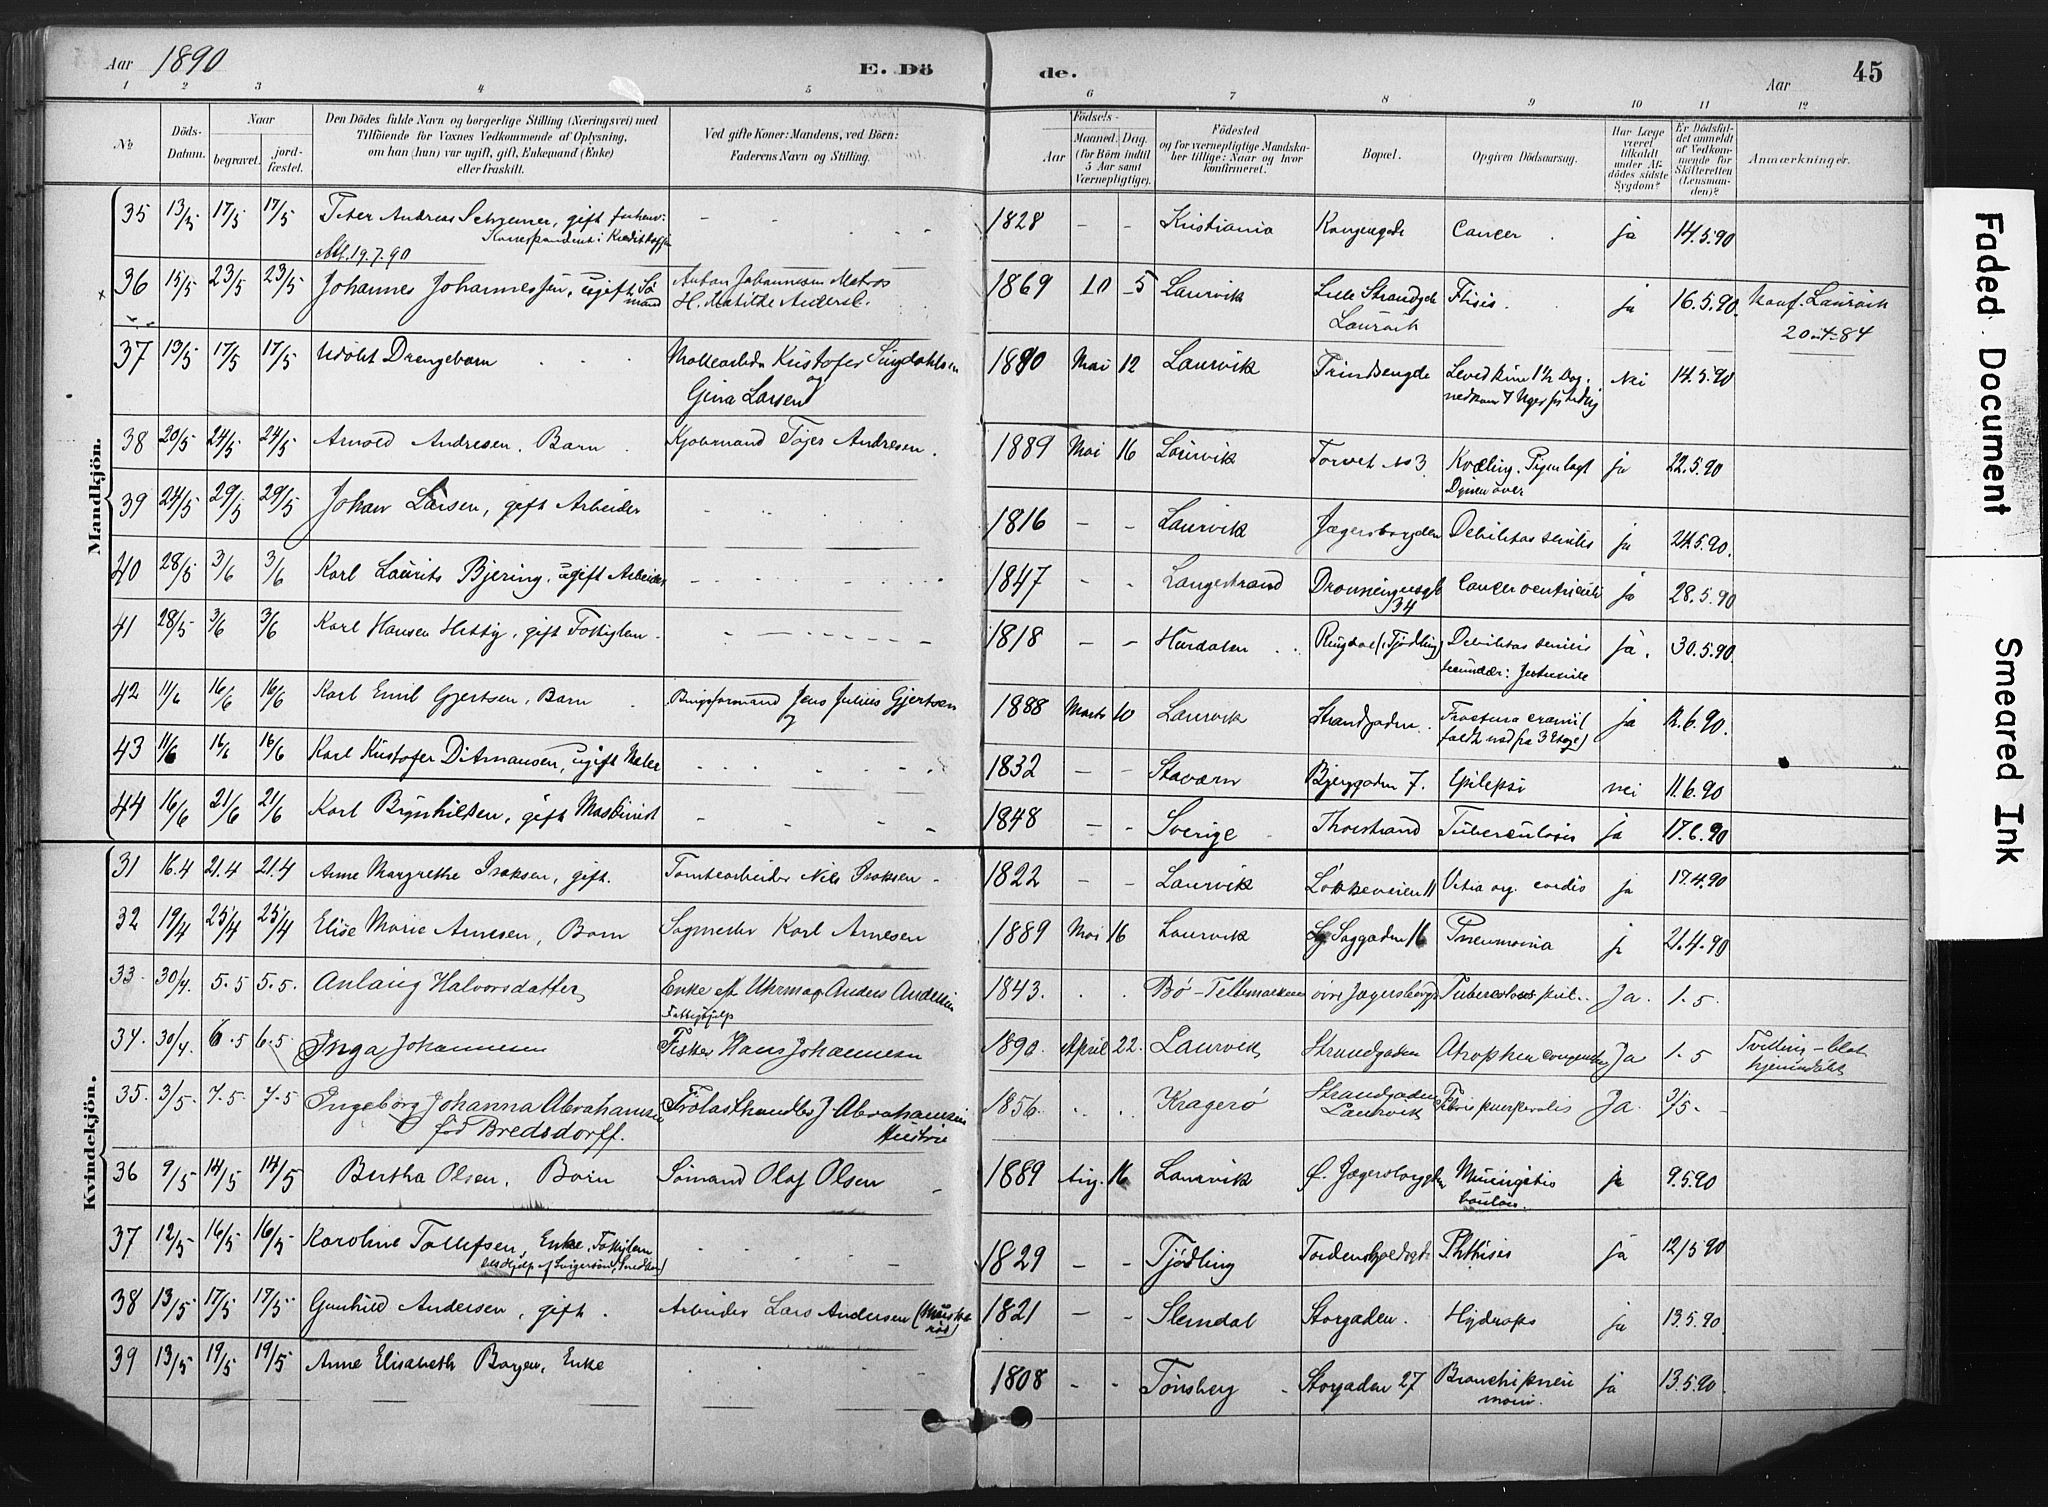 Aar 1890 E. Dö de. Aar 45
1 2 3 4 5 6 7 8 9 10 11 12
№
Döds-Datum.
Naar
begravet. jordfæstet.
Den Dödes fulde Navn og borgerlige Stilling (Næringsvei) med
Tilföiende for Voxnes Vedkommende af Oplysning,
om han (hun) var ugift, gift, Enkemand (Enke)
eller fraskilt.
Ved gifte Koner: Mandens, ved Börn:
Faderens Navn og Stilling.
Födsels-
Aar Maaned. Dag.
(for Börn indtil
5 Aar samt
Værnepligtige).
Födested
og for værnepligtige Mandska-
ber tillige: Naar og hvor
konfirmeret.
Bopæl.
Opgiven Dödsaarsag.
Har Læge
været
tilkaldt
under Af-
dödes sidste
Sygdom?
Er Dödsfal-
det anmeldt
af Vedkom-
mende for
Skifteretten
(Lensman-
den)?
Anmærkninger.
Mandkjön.
35 13/5 17/5 17/5 Peter Andreas Schremer, gift forhenv: - - 1828 - - Kristiania Kongensgade Cancer ja 14.5.90
Korrespondent i Kreditkassen
Att. 19.7.90
36 15/5 23/5 23/5 Johannes Johannessen, ugift Sömand Anton Johannesen Matros 1869 10 5 Laurvik Lille Strandgde Ftisis. ja 16.5.90 Konf. Laurvik
H. Matilde Andersd. Laurvik 20-4-84
37 13/5 17/5 17/5 Udöbt Drengebarn Kristofer Singdahlsen 1890 Mai 12 Laurvik Leved kun 1½ Dag. Nei 14.5.90
og
Gina Larsen
38 20/5 24/5 24/5 Arnold Andresen, Barn Kjøbmand Andresen. 1889 Mai 16 Laurvik Torvet No 3 Kvæling. Pigen lagt ja 22.5.90
Dynen over
39 24/5 29/5 29/5 Johan Larsen, gift Arbeider 1816 - - Laurvik Jægersborgden Debilitas senilis ja 24.5.90.
40 28/5 3/6 3/6 Karl Laurits Bjering, ugift Arbeider 1847 - - Langestrand Dronningensgd Cancer ventriculi ja 28.5.90
34
41 28/5 3/6 3/6 Karl Hansen Hettig, gift Fattiglem - 1818 - - Hurdalen (Tjødling) Debilitas senilis ja. 30.5.90.
42 11/6 16/6 16/6 Karl Emil Gjertsen, Barn Jens Julius Gjertsen 1888 Marts 10 Laurvik Strandgaden. Fractura cranii ja 12.6.90.
(faldt ned fra 3 Etage)
43 11/6 16/6 16/6 Karl Kristofer Ditmansen, ugift Maler 1832 - - Stavern Bjerggaden 7. Epilepsi nei 11.6.90
44 16/6 21/6 21/6 Karl Brynhildsen, gift Maskinist - 1848 - - Sverige Thorstrand Tuberculosis ja 17.6.90
Kvindekjön.
31 16.4 21.4 21.4 Anne Margrethe Isaksen, gift. Tomtearbeider Nils Isaksen - 1822 - - Laurvik Løkkeveien 11 Vitia org. cordis ja 17.4.90
32 19/4 25/4 25/4 Elise Marie Arnesen, Barn Sagmester Karl Arnesen 1889 Mai 16 Laurvik Lg. Saggaden 16 Pneumonia ja 21.4.90
33. 30/4. 5.5 5.5. Anlaug Halvorsdatter, Enke ef Uhrmag. Anders Andersen 1843. . . Bø - Tellemarken øvre Jægersborggd Tuberculosis pul.. Ja. 1.5.
Fattighjelp
34. 30/4. 6.5 6.5. Inga Johannesen Fisker Hans Johannesen 1890. April 22. Laurvik Strandgaden Atrophia congenita Ja 1.5 Tvilling - blot
hjemmedöbt
35. 3/5. 7.5 7.5 Ingeborg Johanna Abrahamsen Trælasthandler J. Abrahamsens 1856. . . Kragerø Strandgaden Febris puerperalis Ja. 3/5. -
fød Bredsdorff. Hustru Laurvik
36 9/5 14/5 14/5 Bertha Olsen, Barn Sömand Olaf Olsen - 1889 Aug. 16 Laurvik Ø. Jægersborggden Meningitis ja 9.5.90
37 12/5 16/5 16/5 Karoline Tollefsen, Enke, Fattiglem 1829 - - Tjødling Tordenskjoldsgd Phthisis ja 12/5 90
38 13/5 17/5 17/5 Gunhild Andersen, gift. Arbeider Lars Andersen 1821 - - Slemdal Storgaden. Hydrops ja 13.5.90.
39 13/5 19/5 19/5 Anne Elisabeth Borgen, Enke 1808 - - Tönsberg - Storgaden 27 Bronchipneu ja 13.5.90.
moni.
Faded Document
Smeared Ink